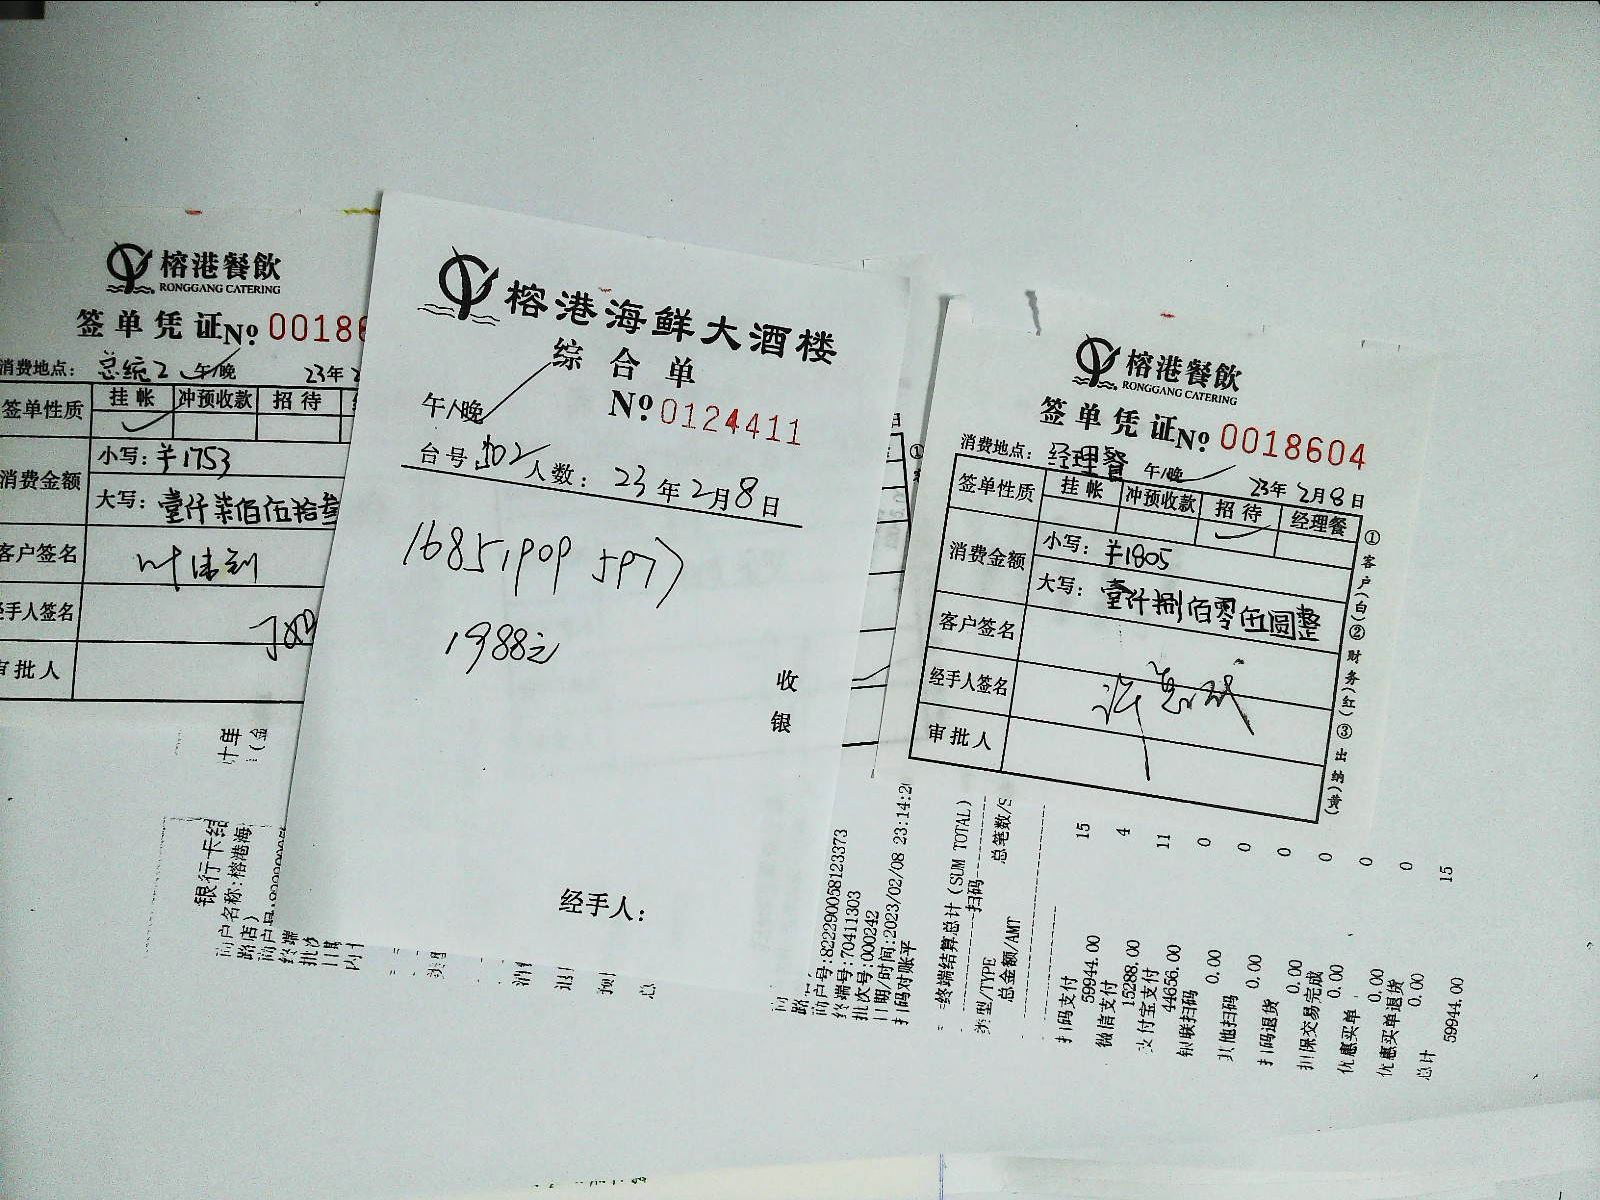 榕港餐飲
RONGGANG CATERING
签单凭证No 00186
消费地点: 总统2 午/晚 23年
签单性质 挂帐 冲预收款 招待
消费金额 小写: ¥1753
大写: 壹仟柒佰伍拾叁
客户签名
经手人签名
审批人
银行卡结
商户名称:榕港海
路店)
榕港海鲜大酒楼
综合单
午/晚 No 0124411
台号: 302 人数: 23年2月8日
16851909 5977
1988元
收
银
经手人:
榕港餐飲
RONGGANG CATERING
签单凭证No 0018604
消费地点: 经理餐 午/晚 23年2月8日
签单性质 挂帐 冲预收款 招待 经理餐
消费金额 小写: ¥1805
大写: 壹仟捌佰零伍圆整
客户签名
经手人签名
审批人
①客户(白)②财务(红)③出纳(黄)
商户号:822290058123373
终端号:70411303
批次号:000242
日期/时间:2023/02/08 23:14:2
扫码对账平
终端结算总计(SUM TOTAL)
扫码
类型/TYPE 总笔数/S
总金额/AMT
扫码支付 15
59944.00
微信支付 4
15288.00
支付宝支付 11
44656.00
银联扫码 0
0.00
其他扫码 0
0.00
扫码退货 0
0.00
担保交易完成 0
0.00
优惠买单 0
0.00
优惠买单退货 0
0.00
总计 15
59944.00